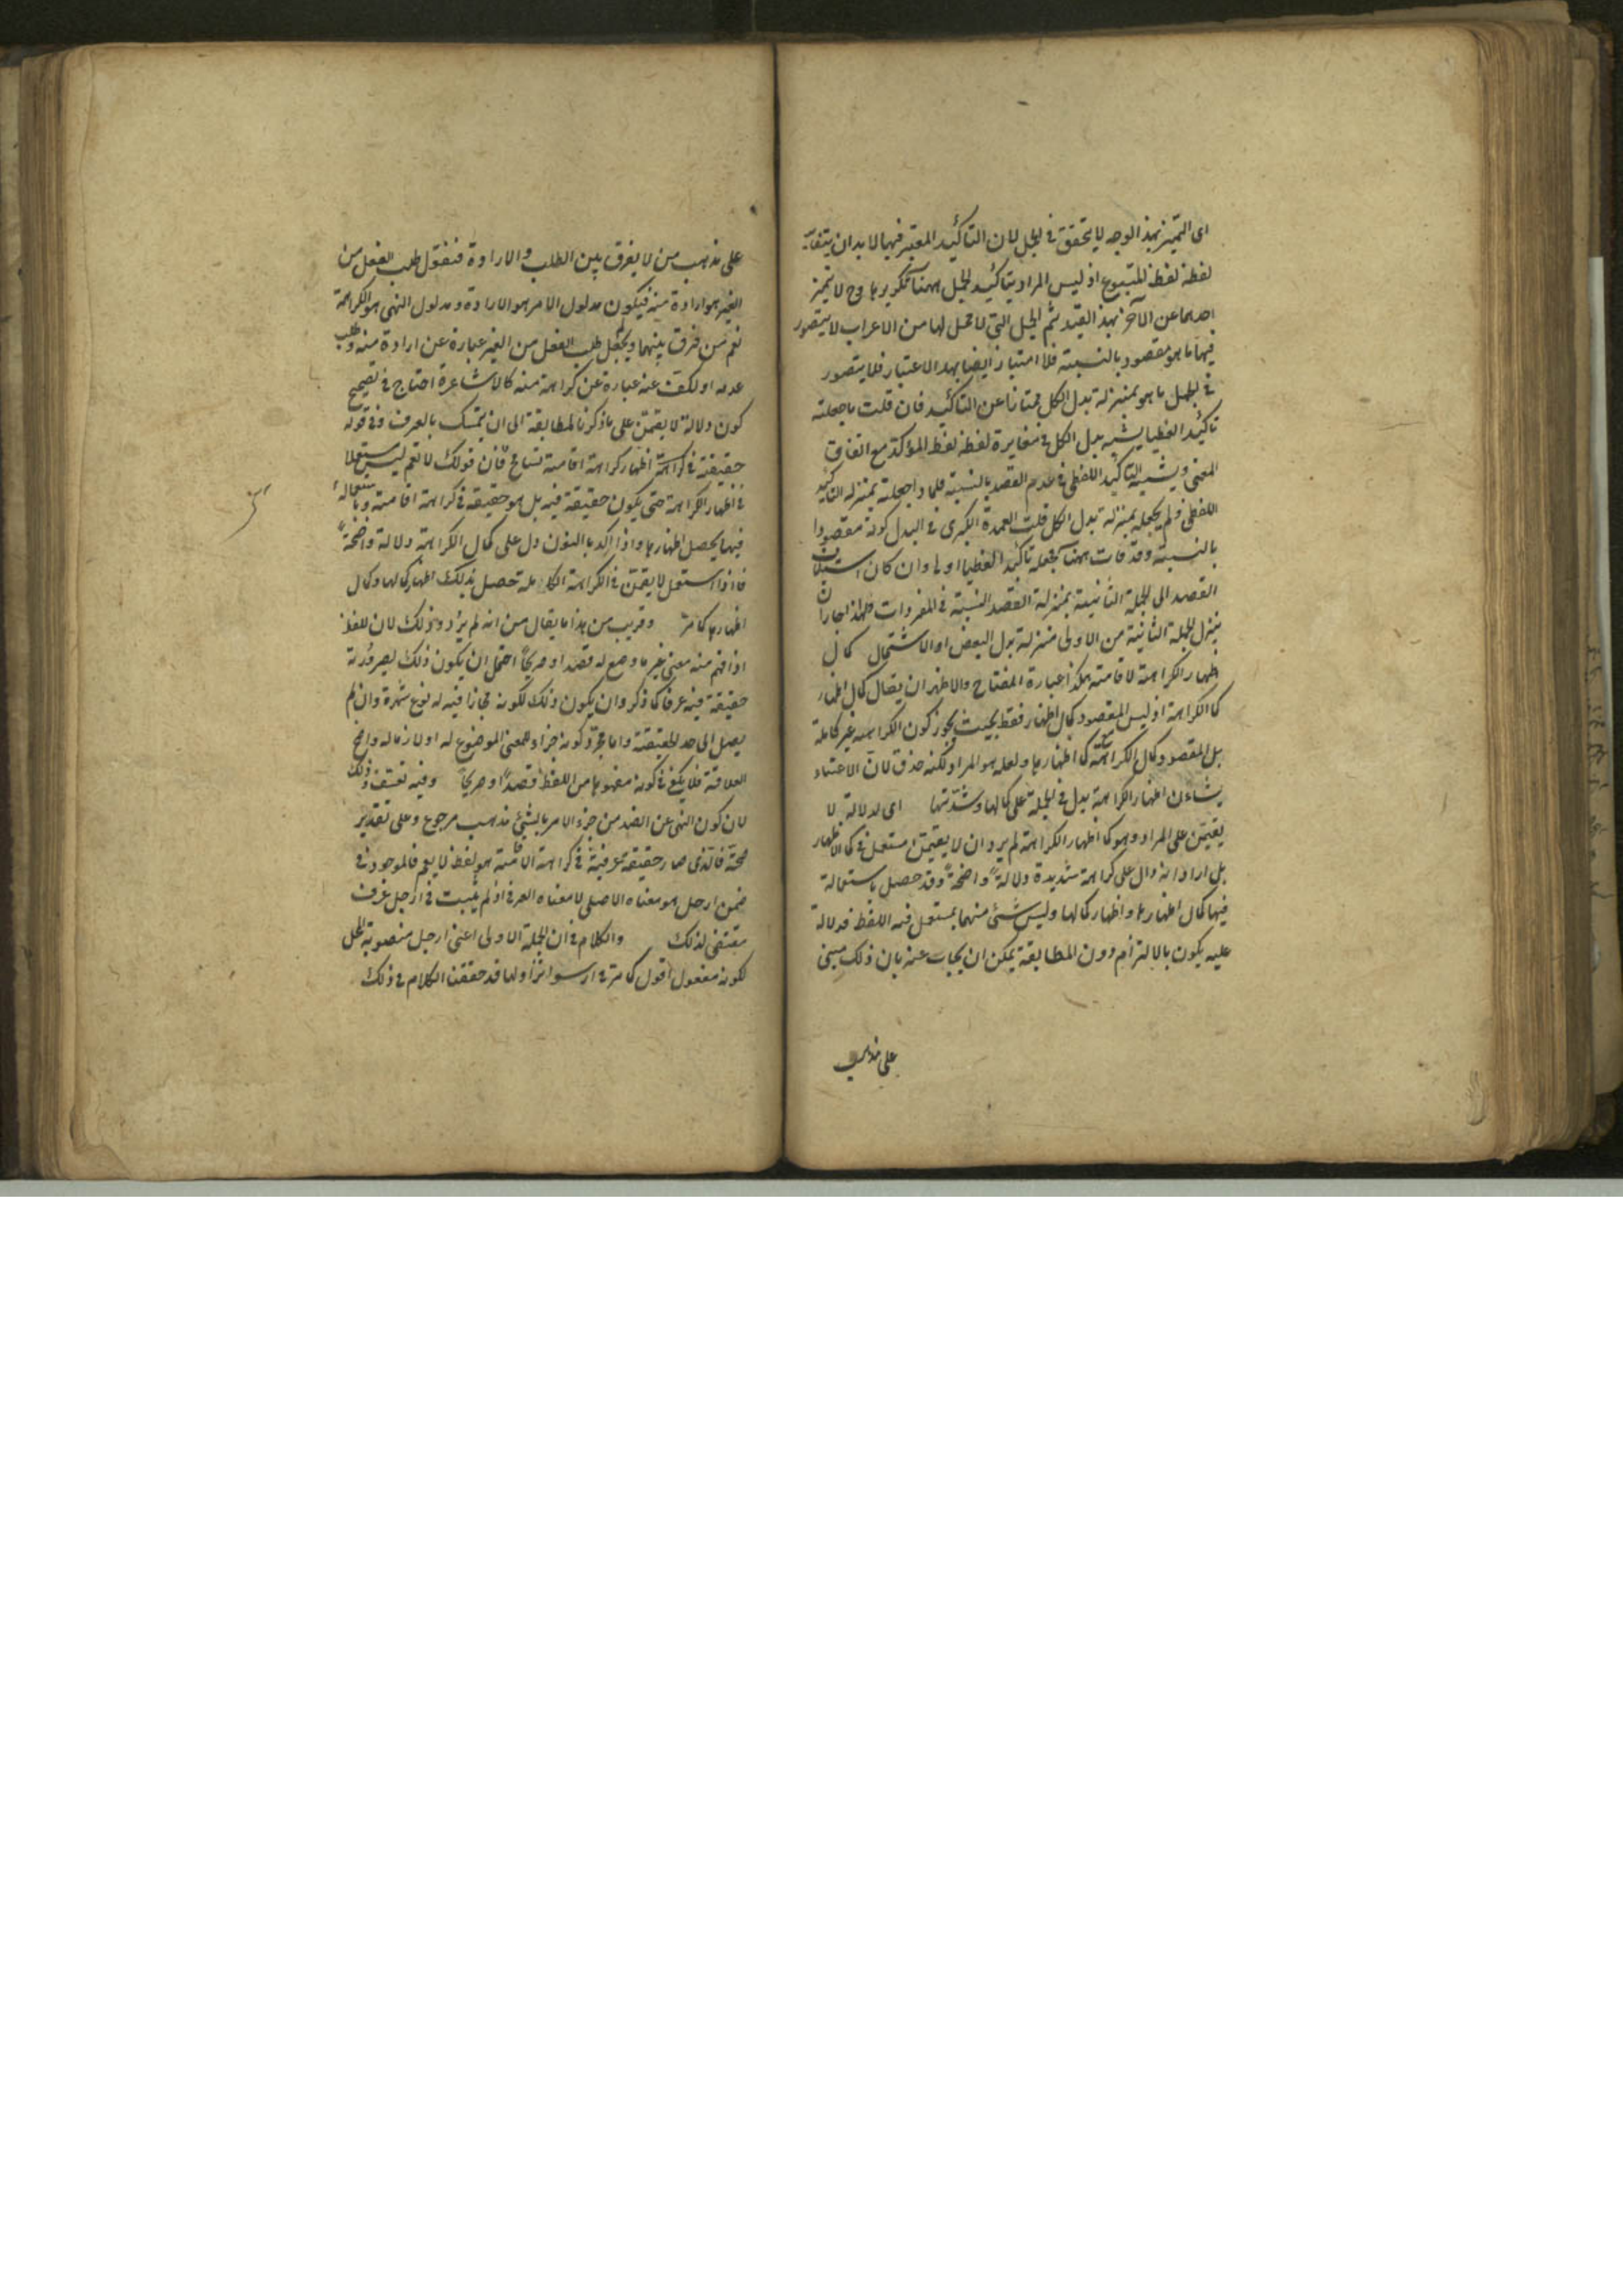 اى التميز بهذا الوجه لا يتحقق فى الجمل لان التاكيد المعتبر فيها لا بد ان يتغاير
لفظه لفظ المتبوع اذ ليس المراد بتاكيد الجمل ههنا تكريرها وح لا يتميز
احدهما عن الآخر بهذا القيد ثم الجمل التى لا محل لها من الاعراب لا يتصور
فيها ما هو مقصود بالنسبة فلا امتياز ايضا بهذا الاعتبار فلا يتصور
فى الجمل ما هو بمنزلة بدل الكل ممتازا عن التاكيد فان قلت ما جعلته
تاكيدا لفظيا يشبه بدل الكل فى مغايرة لفظه لفظ المؤكد مع اتفاق
المعنى ويشبه التاكيد اللفظى فى عدم القصد بالنسبة فلماذا جعلته بمنزلة التاكيد
اللفظى ولم يجعله بمنزلة بدل الكل قلت العمدة الكبرى فى البدل كونه مقصودا
بالنسبة وقد فات ههنا فجعله تاكيدا لفظيا اولى وان كان استيناف
القصد الى الجملة الثانية بمنزلة القصد النسبة فى المفردات فلهذا جاز ان
ينزل الجملة الثانية من الاولى منزلة بدل البعض او الاشتمال كمال
اظهار الكراهة لاقامته هكذا عبارة المفتاح والاظهر ان يقال كمال اظهار
كمال الكراهة اذ ليس المقصود كمال اظهار فقط بحيث يجوز كون الكراهة غير كاملة
بل المقصود كمال الكراهة كمال اظهارها ولعله هو المراد لكنه حذف لان الاعتناء
بشان اظهار الكراهة يدل فى الجملة على كمالها وشدتها اى لدلالة لا
تقيمن على المراد وهو كمال اظهار الكراهة لم يرد ان لا تقيمن مستعمل فى كمال الاظهار
بل اراد انه دال على كراهة شديدة دلالة واضحة وقد حصل باستعماله
فيها كمال اظهارها واظهار كمالها وليس شئ منهما بمستعمل فيه اللفظ فدلالة
عليه يكون بالالتزام دون المطابقة يمكن ان يجاب عنه بان ذلك مبنى
على مذهب
على مذهب من لا يفرق بين الطلب والارادة فنقول طلب الفعل من
الغير هو ارادة منه فيكون مدلول الامر هو الارادة ومدلول النهى هو الكراهة
نعم من فرق بينهما ولم يجعل طلب الفعل من الغير عبارة عن ارادة منه وطلب
عدمه او الكف عنه عبارة عن كراهة منه كالاشاعرة احتاج فى تصحيح
كون دلالة لا تقيمن على ما ذكرنا لمطابقة الى ان يتمسك بالعرف وفى قوله
حقيقة فى كراهة اظهار كراهة اقامته تسامح فان قولك لا تقم ليس مستعملا
فى اظهار الكراهة حتى يكون حقيقة فيه بل هو حقيقة فى كراهة اقامته وباستعماله
فيها يحصل اظهارها واذا اكد بالنون دل على كمال الكراهة دلالة واضحة
فاذا استعمل لا تقيمن فى الكراهة الكاملة حصل بذلك اظهار كمالها وكمال
اظهارها كما مر وقريب من هذا ما يقال من انه لم يرد وذلك لان اللفظ
اذا فهم منه معنى غير ما وضع له قصدا وصريحا احتمل ان يكون ذلك لصيرورته
حقيقة فيه عرفا كما ذكر وان يكون ذلك لكونه مجازا فيه له نوع شهرة وان لم
يصل الى حد الحقيقة واما مجرد كونه جزاء للمعنى الموضوع له او لازما له واضح
العلاقة فلا يكفى فى كونه مفهوما من اللفظ قصدا وصريحا وفيه تعسف وذلك
لان كون النهى عن الضد من جزء الامر بالشئ مذهب مرجوع وعلى تقدير
صحته فالذى صار حقيقة عرفية فى كراهة الاقامة هو لفظ لا تقم فالموجود فى
ضمن ارحل هو معناه الاصلى لا معناه العرفى اذ لم يثبت فى ارحل عرف
مقتضى لذلك والكلام فى ان الجملة الاولى اعنى ارحل منصوبة المحل
لكونه مفعول اقول كما مر فى ارسوا نزاولها قد حققنا الكلام فى ذلك